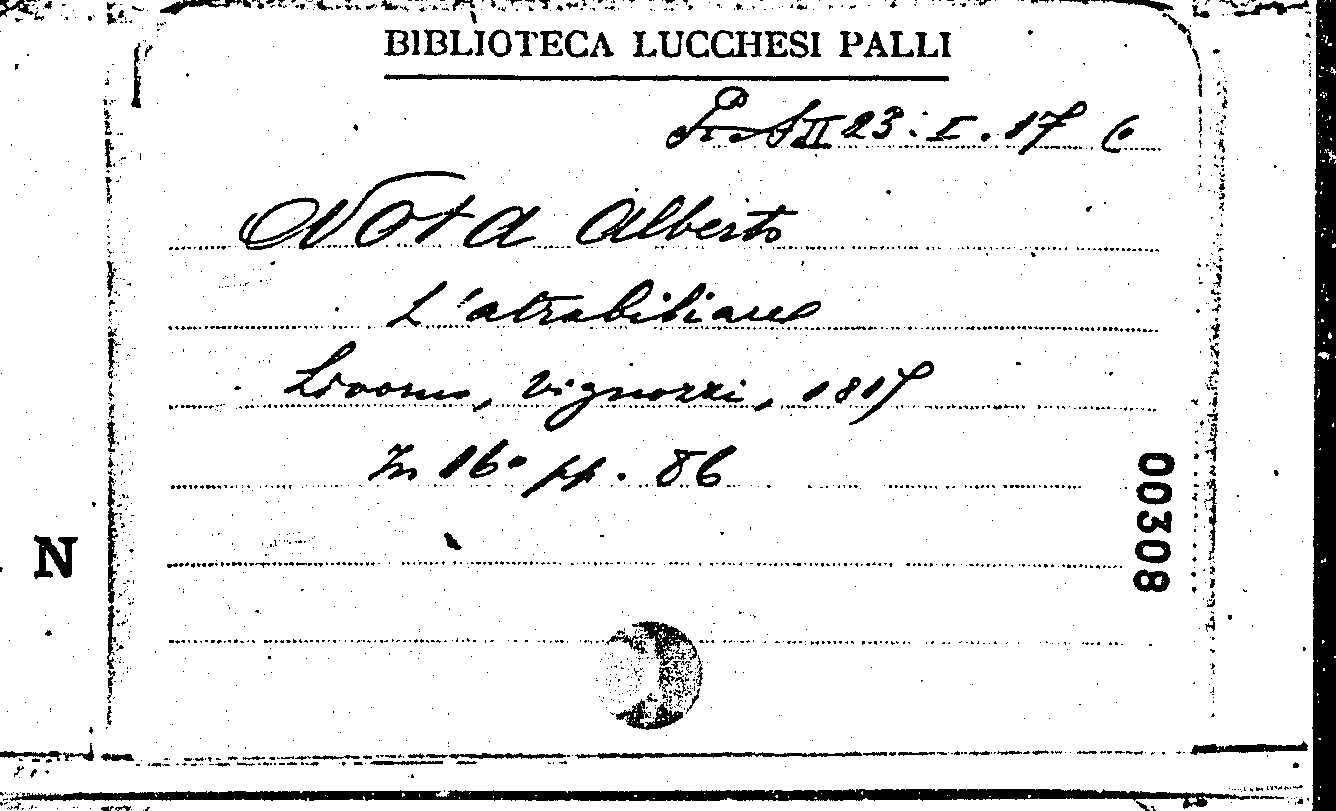 BIBLIOTECA LUCCHESI PALLI
II 23. I. 17 6
NOTA Alberto
L'atrabiliare
Livorno, Vignozzi, 1817
In 16° pp. 86
N
00308